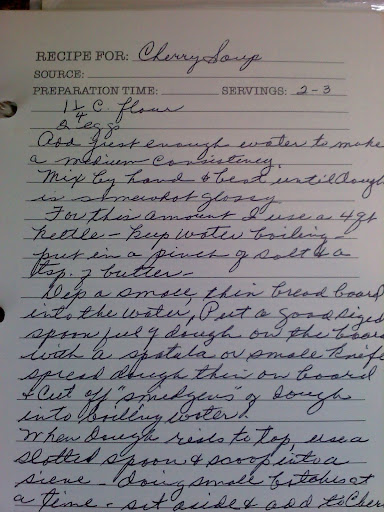 RECIPE FOR: Cherry Soup
SOURCE:
PREPARATION TIME: SERVINGS: 2-3
1 1/4 C. flour
2 eggs
Add just enough water to make
a medium consistency.
Mix by hand & beat until dough
is somewhat glossy
For this amount I use a 4 qt
kettle - keep water boiling
put in a pinch of salt & a
tsp. of butter -
Dip a small thin bread board
into the water, Put a good sized
spoon ful of dough on the board
with a spatula or small knife
spread dough thin on board
& cut off "smidgens" of dough
into boiling water.
When dough rises to top, use a
slotted spoon & scoop into a
sieve - doing small batches at
a time - set aside & add to Cher